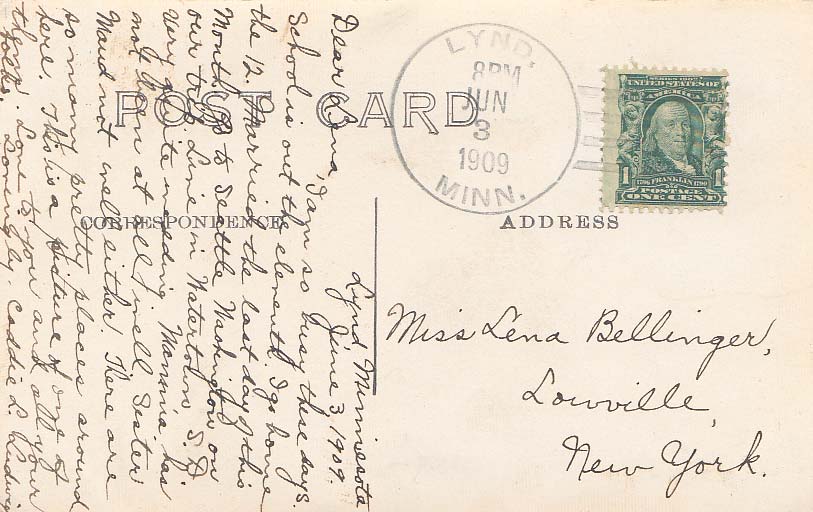 POST CARD
CORRESPONDENCE
ADDRESS
LYND,
8PM
JUN
3
1909
MINN.
SERIES 1902
UNITED STATES OF
AMERICA
1 1706 FRANKLIN 1790 1
POSTAGE
ONE CENT
Miss Lena Bellinger,
Lowville,
New York.
Lynd Minnesota
June 3, 1909.
Dear Lena, I am so busy these days.
School is out the eleventh. I go home
the 12. Married the last day of this
Month go to Seattle Washington on
our trip. Live in Watertown S. D
Very quite wedding Mamma has
not been at all well, Sister
Maud not well either. There are
so many pretty places around
here. This is a picture of one of
them. Love to you and all your
folks. Lovingly. Caddie L. Ludwig